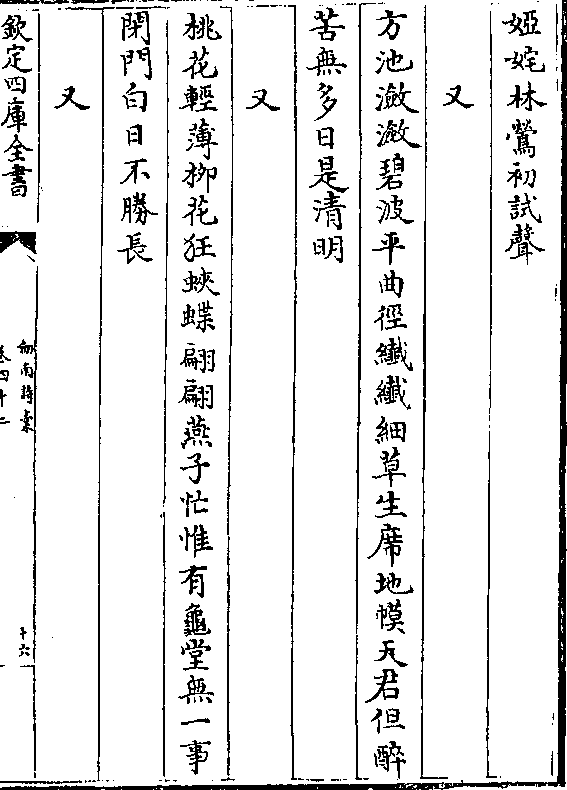 婭姹林鶯初試聲
又
方池瀲瀲碧波平曲徑纖纖細草生席地幙天君但醉
苦無多日是清明
又
桃花輕薄柳花狂蛺蝶翩翩燕子忙惟有龜堂無一事
閉門白日不勝長
又
欽定四庫全書
劍南詩稾
卷四十二
十六